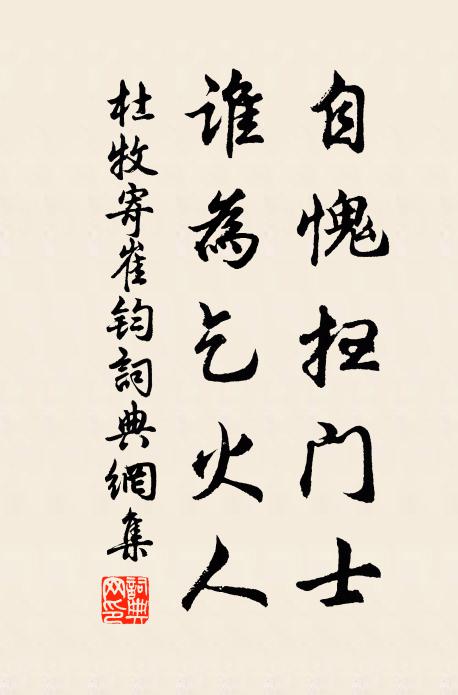 自愧扫门士
谁為乞火人
杜牧寄崔钧詞典網集
詞典网印